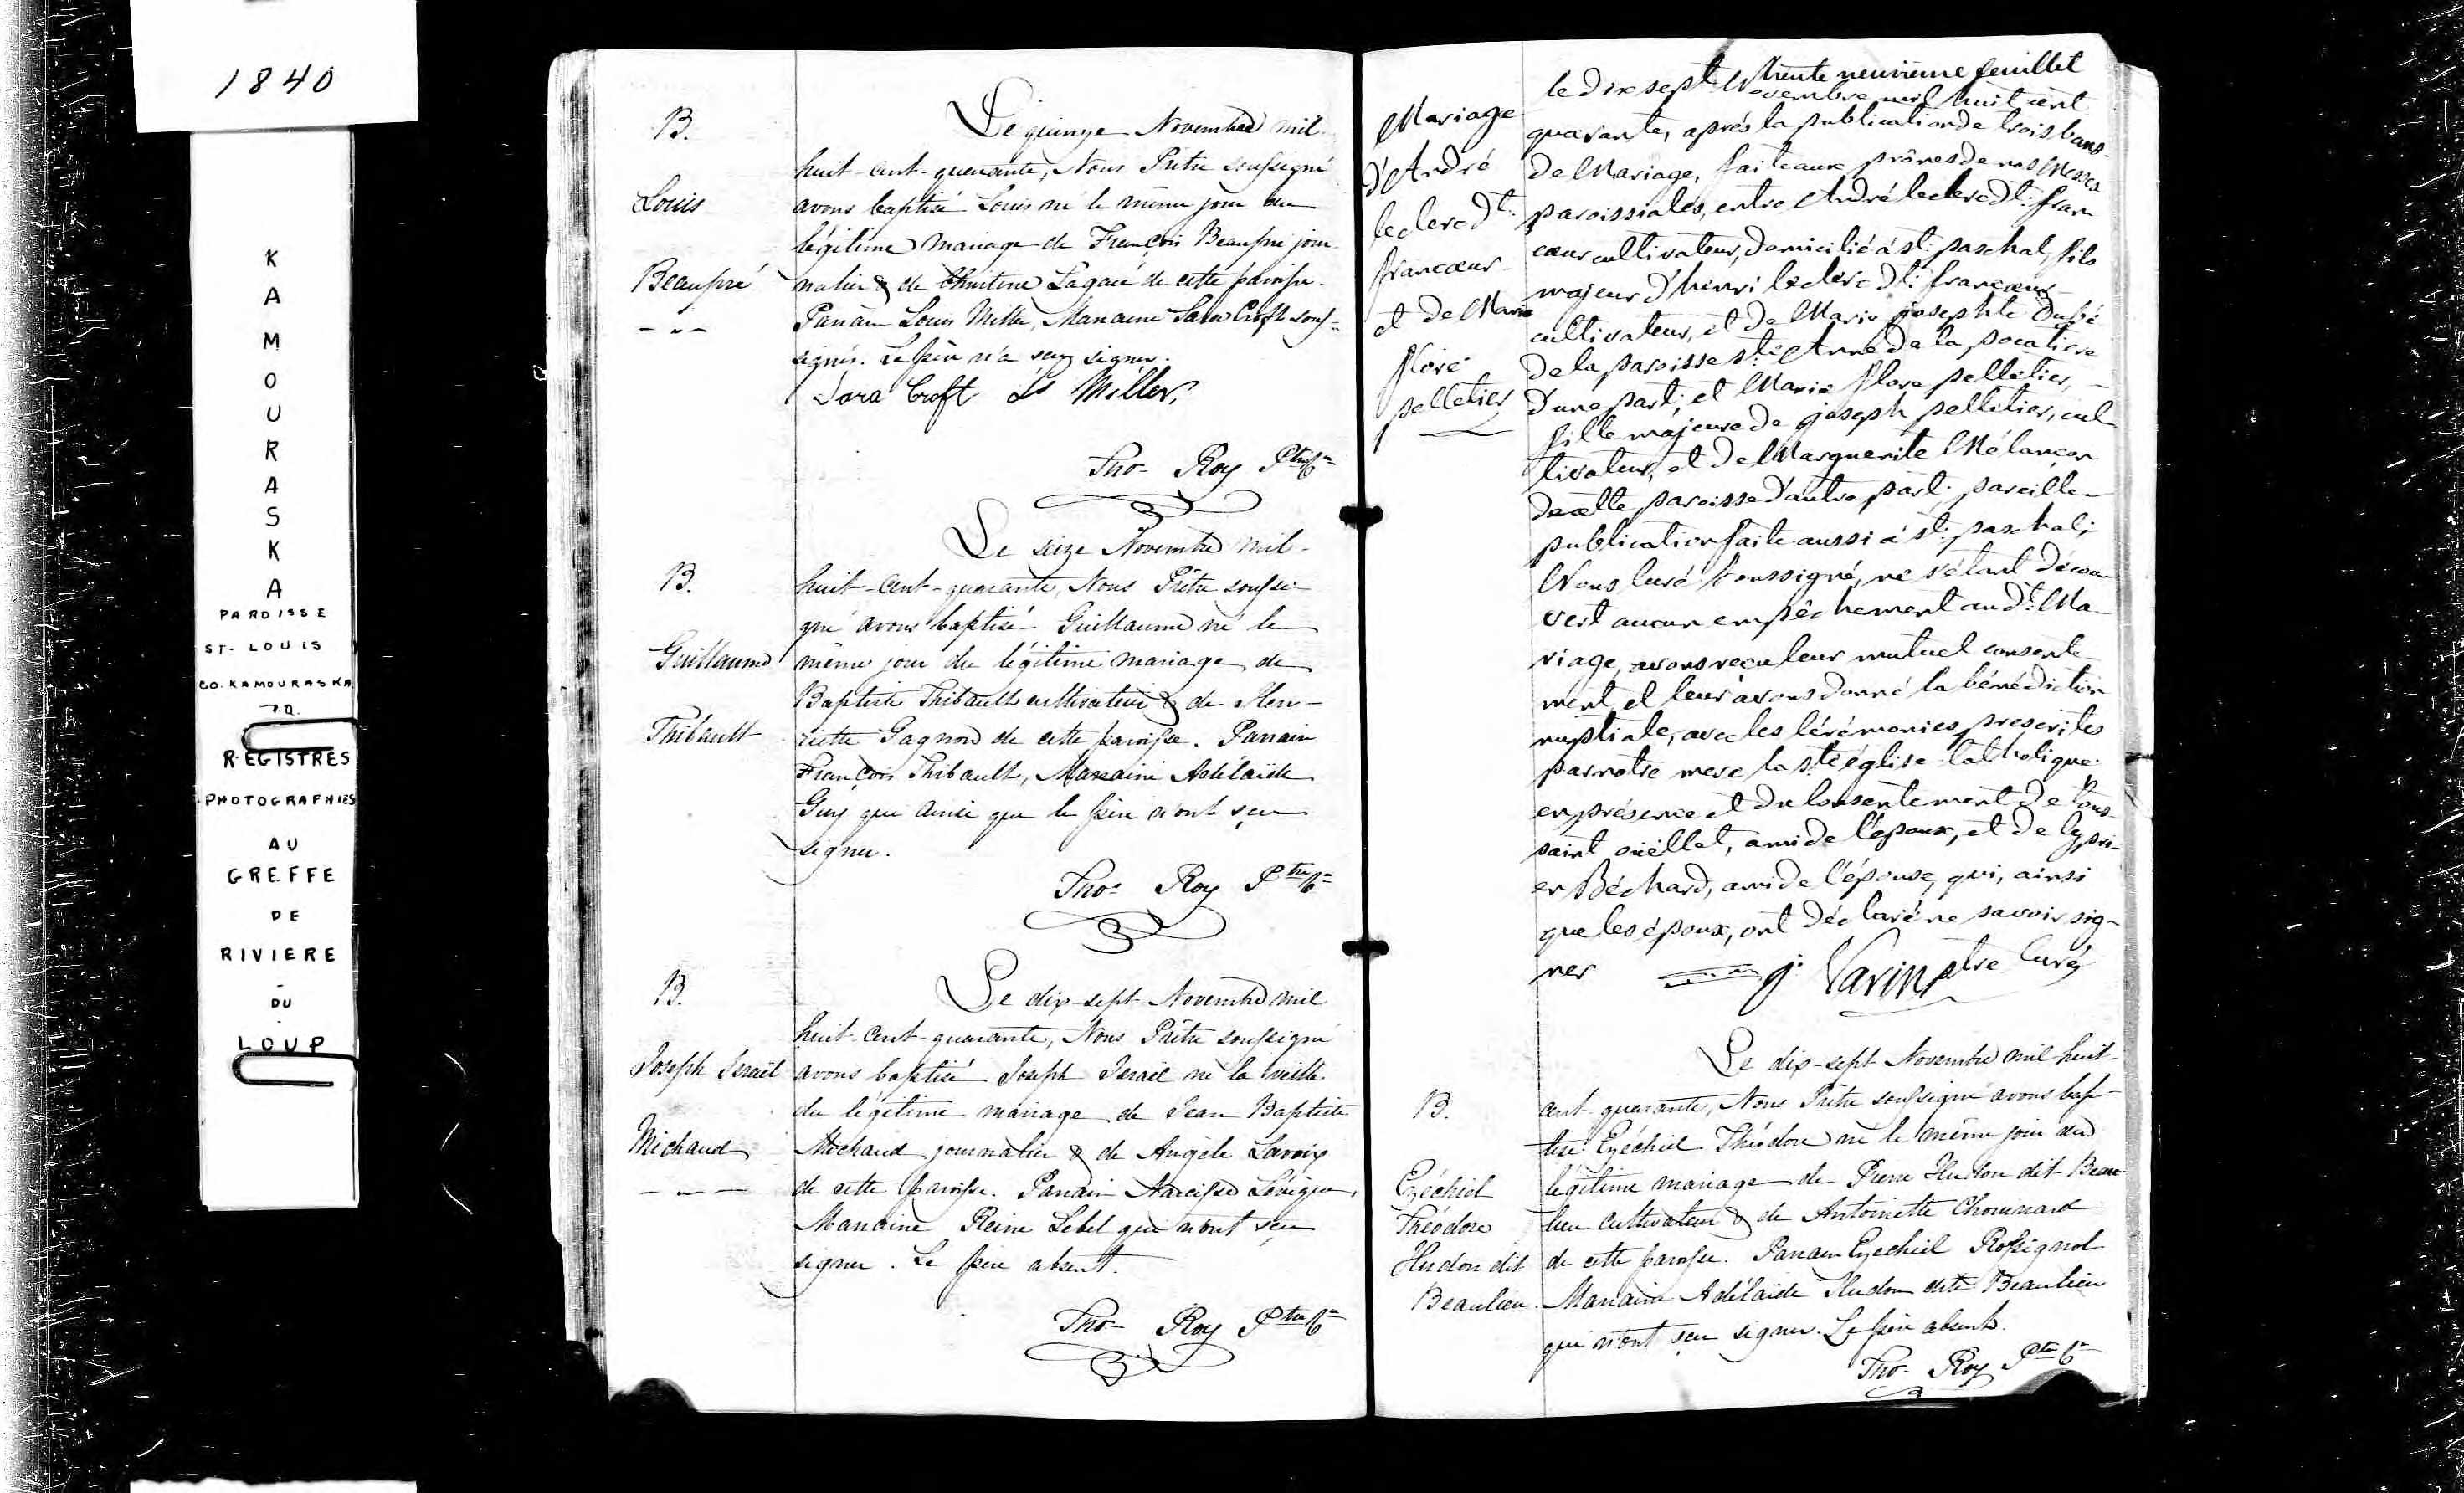 1840
K
A
M
O
U
R
A
S
K
A
PAROISSE
ST. LOUIS
CO. KAMOURASKA
P.Q.
REGISTRES
PHOTOGRAPHIES
AU
GREFFE
DE
RIVIERE
-
DU
-
LOUP
B.
Louis
Beaupré
Le quinze Novembre mil-
huit-cent-quarante, Nous Prêtre soussigné
avons baptisé Louis né le même jour du
légitime mariage de François Beaupré jour-
nalier & de Christine Lagacé de cette paroisse.
Parrain Louis Miller, Marraine Sara Croft sous-
signés. Le père n'a sçu signer.
Sara Croft Ls Miller,
Tho- Roy Ptre
B.
Guillaume
Thibault
Le seize Novembre mil-
huit-cent-quarante, Nous Prêtre soussi-
gné avons baptisé Guillaume né le
même jour du légitime mariage de
Baptiste Thibault cultivateur & de Hen-
riette Gagnon de cette paroisse. Parrain
François Thibault, Marraine Adélaïde
Guy qui ainsi que le père n'ont sçu
signer.
Tho- Roy Ptre
B.
Joseph Israël
Michaud
Le dix-sept Novembre mil
huit-cent-quarante, Nous Prêtre soussigné
avons baptisé Joseph Israël né la veille
du légitime mariage de Jean Baptiste
Michaud journalier & de Angèle Lavoix
de cette paroisse. Parrain Narcisse Lévêque,
Marraine Reine Lebel qui n'ont sçu
signer. Le père absent.
Tho- Roy Ptre
trente neuvieme feuillet
Mariage
d'André
leclerc dt.
francœur
et de Marie
flore
pelletier
le dix sept Novembre mil huit cent
quarante, après la publication de trois bans
de Mariage, faite aux prônes de nos Messes
paroissiales, entre André leclerc dt. fran
cœur cultivateur, domicilié à st. paschal, fils
majeur d'henri leclerc dt. francœur
cultivateur, et de Marie josephte Dubé
de la paroisse ste Anne de la pocatiere
d'une part; et Marie flore pelletier,
fille majeure de joseph pelletier, cul
tivateur, et de Marguerite Mélançon
de cette paroisse d'autre part; pareille
publication faite aussi à st. paschal;
Nous Curé soussigné, ne s'étant décou
vert aucun empêchement au dt. Ma-
riage, avons reçu leur mutuel consente-
ment, et leur avons donné la bénédiction
nuptiale, avec les Cérémonies prescrites
par notre mere la ste église Catholique
en présence et du Consentement de tous-
saint ouëllet, ami de l'époux, et de Cypri-
en Béchard, ami de l'épouse, qui, ainsi
que les époux, ont déclaré ne savoir sig-
ner
J. Varin ptre Curé
B.
Ezéchiel
Théodore
Hudon dit
Beaulieu
Le dix-sept Novembre mil-huit-
cent-quarante, Nous Prêtre soussigné avons bap-
tisé Ezéchiel Théodore né le même jour du
légitime mariage de Pierre Hudon dit Beau-
lieu cultivateur & de Antoinette Chouinard
de cette paroisse. Parrain Ezechiel Rossignol
Marraine Adélaïde Hudon dite Beaulieu
qui n'ont sçu signer. Le père absent.
Tho- Roy Ptre